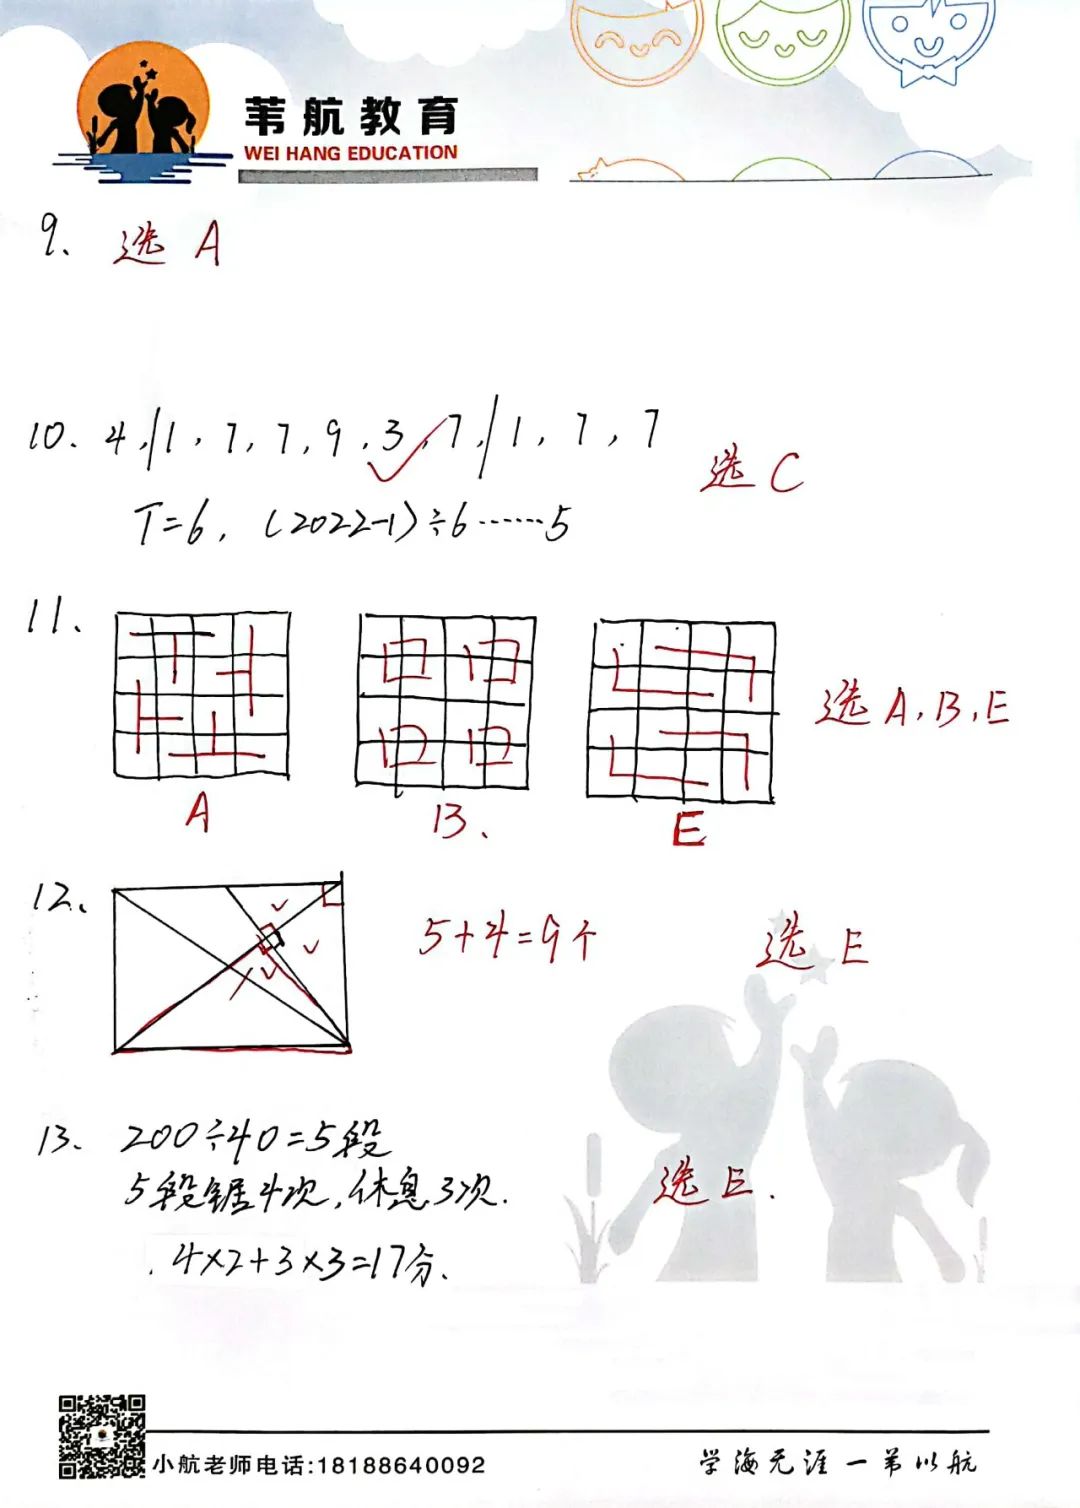 苇航教育
WEI HANG EDUCATION
9、 选 A
10. 4,|1,7,7,9,3,7,|1,7,7
选 C
T=6, (2022-1)÷6……5
11、
选 A,B,E
A
B.
E
12、
5+4=9个
选 E
13、 200÷40=5段
5段锯4次,休息3次.
选 E.
4×2+3×3=17分.
小航老师电话:18188640092
学海无涯一苇以航